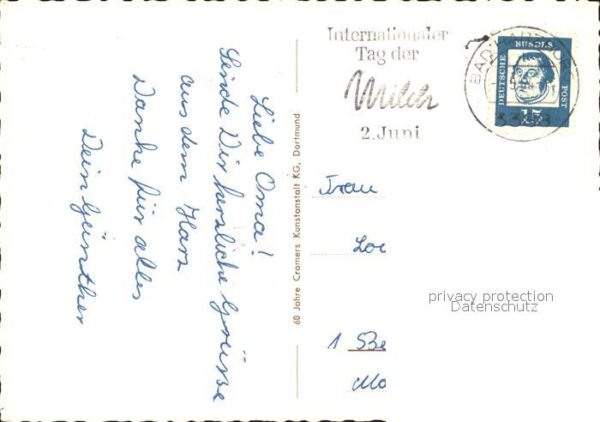 Liebe Oma!
Sende Dir herzliche Grüsse
aus dem Harz
Danke für alles
Dein Günther
60 Jahre Cramers Kunstanstalt KG, Dortmund
Internationaler
Tag der
Milch
2. Juni
BAD
DEUTSCHE
BUNDES
POST
15
Frau
1 Be
privacy protection
Datenschutz